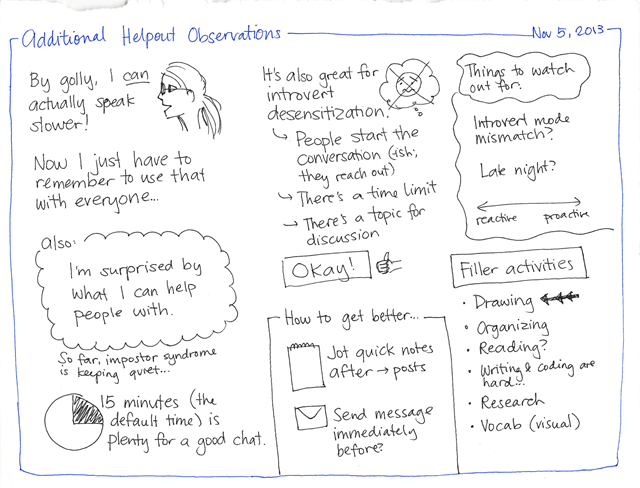 Additional Helpout Observations
Nov 5, 2013
By golly, I can
actually speak
slower!
Now I just have to
remember to use that
with everyone...
also:
I'm surprised by
what I can help
people with.
So far, impostor syndrome
is keeping quiet...
15 minutes (the
default time) is
plenty for a good chat.
It's also great for
introvert
desensitization.
↳ People start the
conversation (ish;
they reach out)
↳ There's a time limit
↳ There's a topic for
discussion
Okay!
How to get better...
Jot quick notes
after → posts
Send message
immediately
before?
Things to watch
out for:
Introvert mode
mismatch?
Late night?
reactive proactive
Filler activities
• Drawing
• Organizing
• Reading?
• Writing & coding are
hard...
• Research
• Vocab (visual)